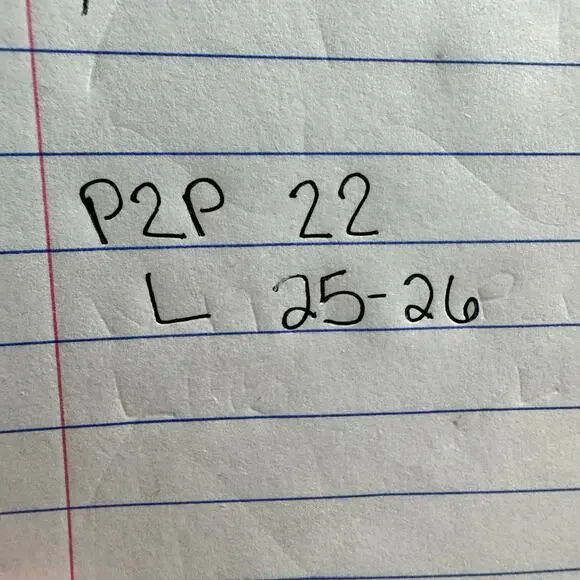 P2P 22
L 25-26